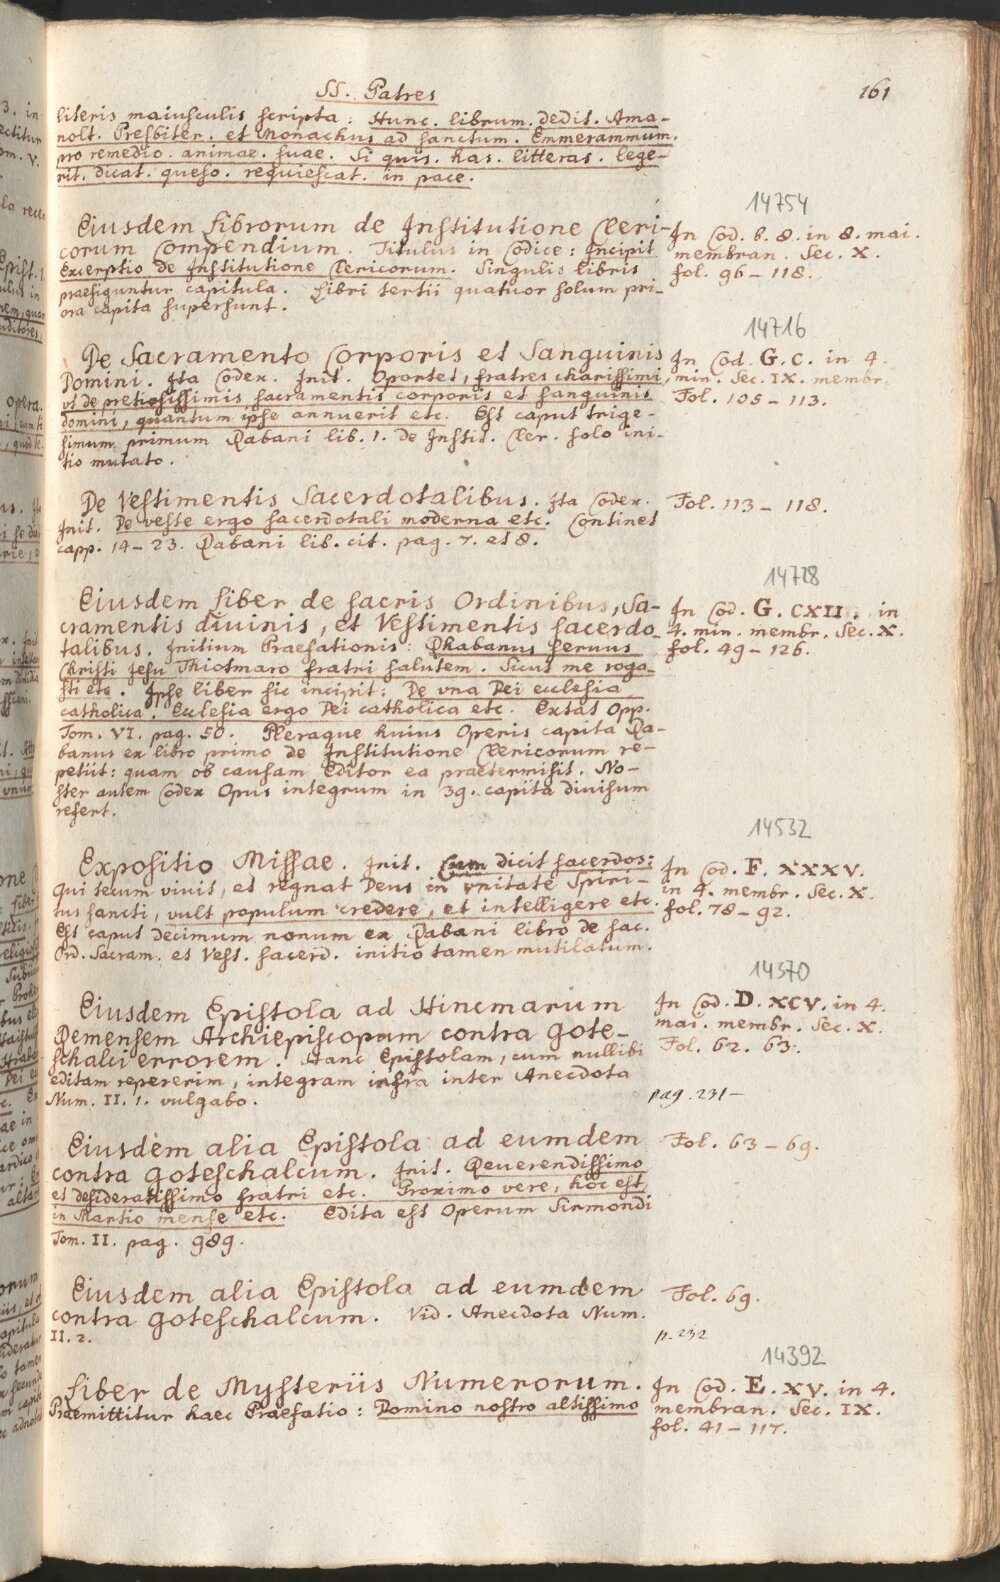 SS. Patres
161
literis maiusculis scripta: Hunc. librum. dedit. Ama-
nolt. Presbiter. et Monachus ad sanctum. Emmerammum.
pro remedio. animae. suae. Si quis. has. litteras. lege-
rit. dicat. queso. requiescat. in pace.
14754
Eiusdem Librorum de Institutione Cleri-
corum Compendium. Titulus in Codice: Incipit
Excerptio de Institutione Clericorum. Singulis libris
praefiguntur capitula. Libri tertii quatuor solum pri-
ora capita supersunt.
In Cod. b. 8. in 8. mai.
membran. Sec. X.
fol. 96 – 118.
14716
De Sacramento Corporis et Sanguinis
Domini. Ita Codex. Init. Oportet, fratres charissimi,
ut de pretiosissimis sacramentis corporis et sanguinis
domini, quantum ipse annuerit etc. Est caput trige-
simum primum Rabani lib. 1. de Instit. Cler. solo ini-
tio mutato.
In Cod. G. C. in 4.
min. Sec. IX. membr.
Fol. 105 – 113.
De Vestimentis Sacerdotalibus. Ita Codex.
Init. De veste ergo sacerdotali moderna etc. Continet
capp. 14 – 23. Rabani lib. cit. pag. 7. et 8.
Fol. 113 – 118.
14728
Eiusdem Liber de sacris Ordinibus, Sa-
cramentis divinis, et Vestimentis sacerdo-
talibus. Initium Praefationis: Rhabanus servus
Christi Jesu Thiotmaro fratri salutem. Sicut me roga-
sti etc. Ipse liber sic incipit: De vna Dei ecclesia
catholica. Ecclesia ergo Dei catholica etc. Extat Opp.
Tom. VI. pag. 50. Pleraque huius Operis capita Ra-
banus ex libro primo de Institutione Clericorum re-
petiit: quam ob causam Editor ea praetermisit. No-
ster autem Codex Opus integrum in 39. capita divisum
refert.
In Cod. G. CXII. in
4. min. membr. Sec. X.
fol. 49 – 126.
14532
Expositio Missae. Init. Cum dicit sacerdos:
Qui tecum vivit, et regnat Deus in vnitate Spiri-
tus sancti, vult populum credere, et intelligere etc.
Est caput decimum nonum ex Rabani libro de sac.
Ord. Sacram. et Vest. sacerd. initio tamen mutilatum.
In Cod. F. XXXV.
in 4. membr. Sec. X.
fol. 78 – 92.
14370
Eiusdem Epistola ad Hincmarum
Remensem Archiepiscopum contra Gote-
schalci errorem. Hanc Epistolam, cum nullibi
editam repererim, integram infra inter Anecdota
Num. II. 1. vulgabo.
In Cod. D. XCV. in 4.
mai. membr. Sec. X.
Fol. 62. 63.
pag. 231 –
Eiusdem alia Epistola ad eumdem
contra Goteschalcum. Init. Reuerendissimo
et desideratissimo fratri etc. Proximo vere, hoc est,
in Martio mense etc. Edita est Operum Sirmondi
Tom. II. pag. 989.
Fol. 63 – 69.
Eiusdem alia Epistola ad eumdem
contra Goteschalcum. Vid. Anecdota Num.
II. 2.
Fol. 69.
p. 232
14392
Liber de Mysteriis Numerorum.
Praemittitur haec Praefatio: Domino nostro altissimo
In Cod. E. XV. in 4.
membran. Sec. IX.
fol. 41 – 117.